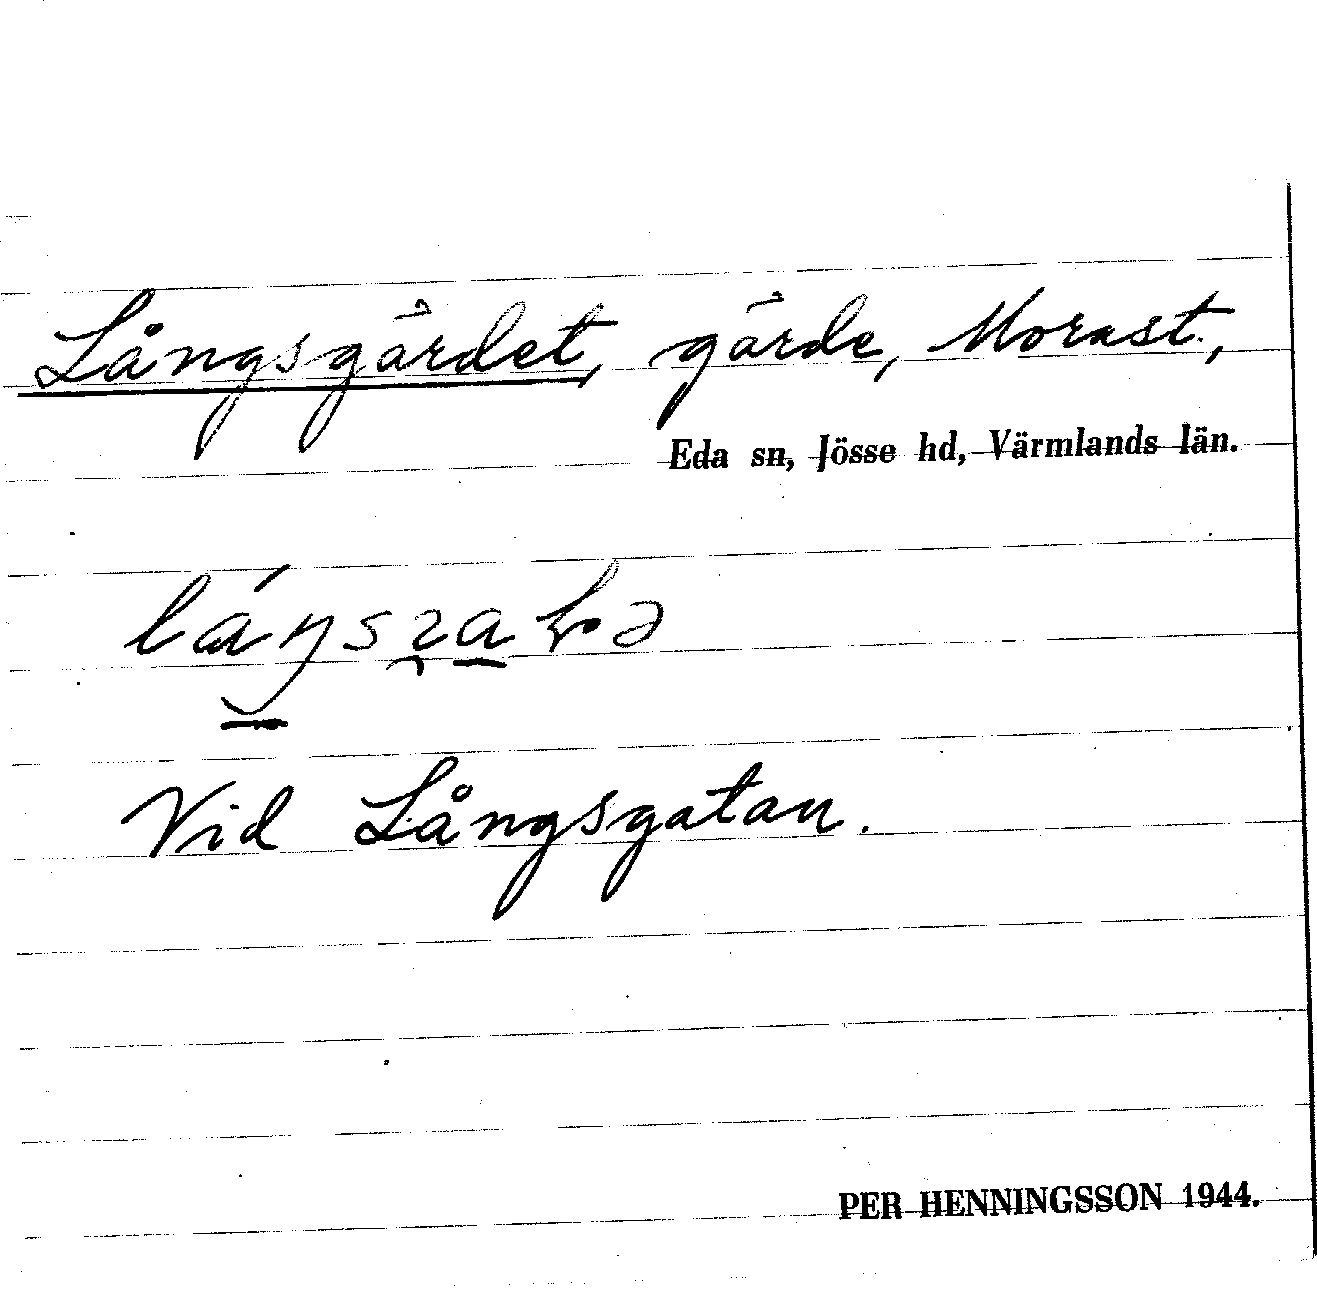 Långsgärdet, gärde, Morast,
Eda sn, Jösse hd, Värmlands län.
Vid Långsgatan.
PER HENNINGSSON 1944.